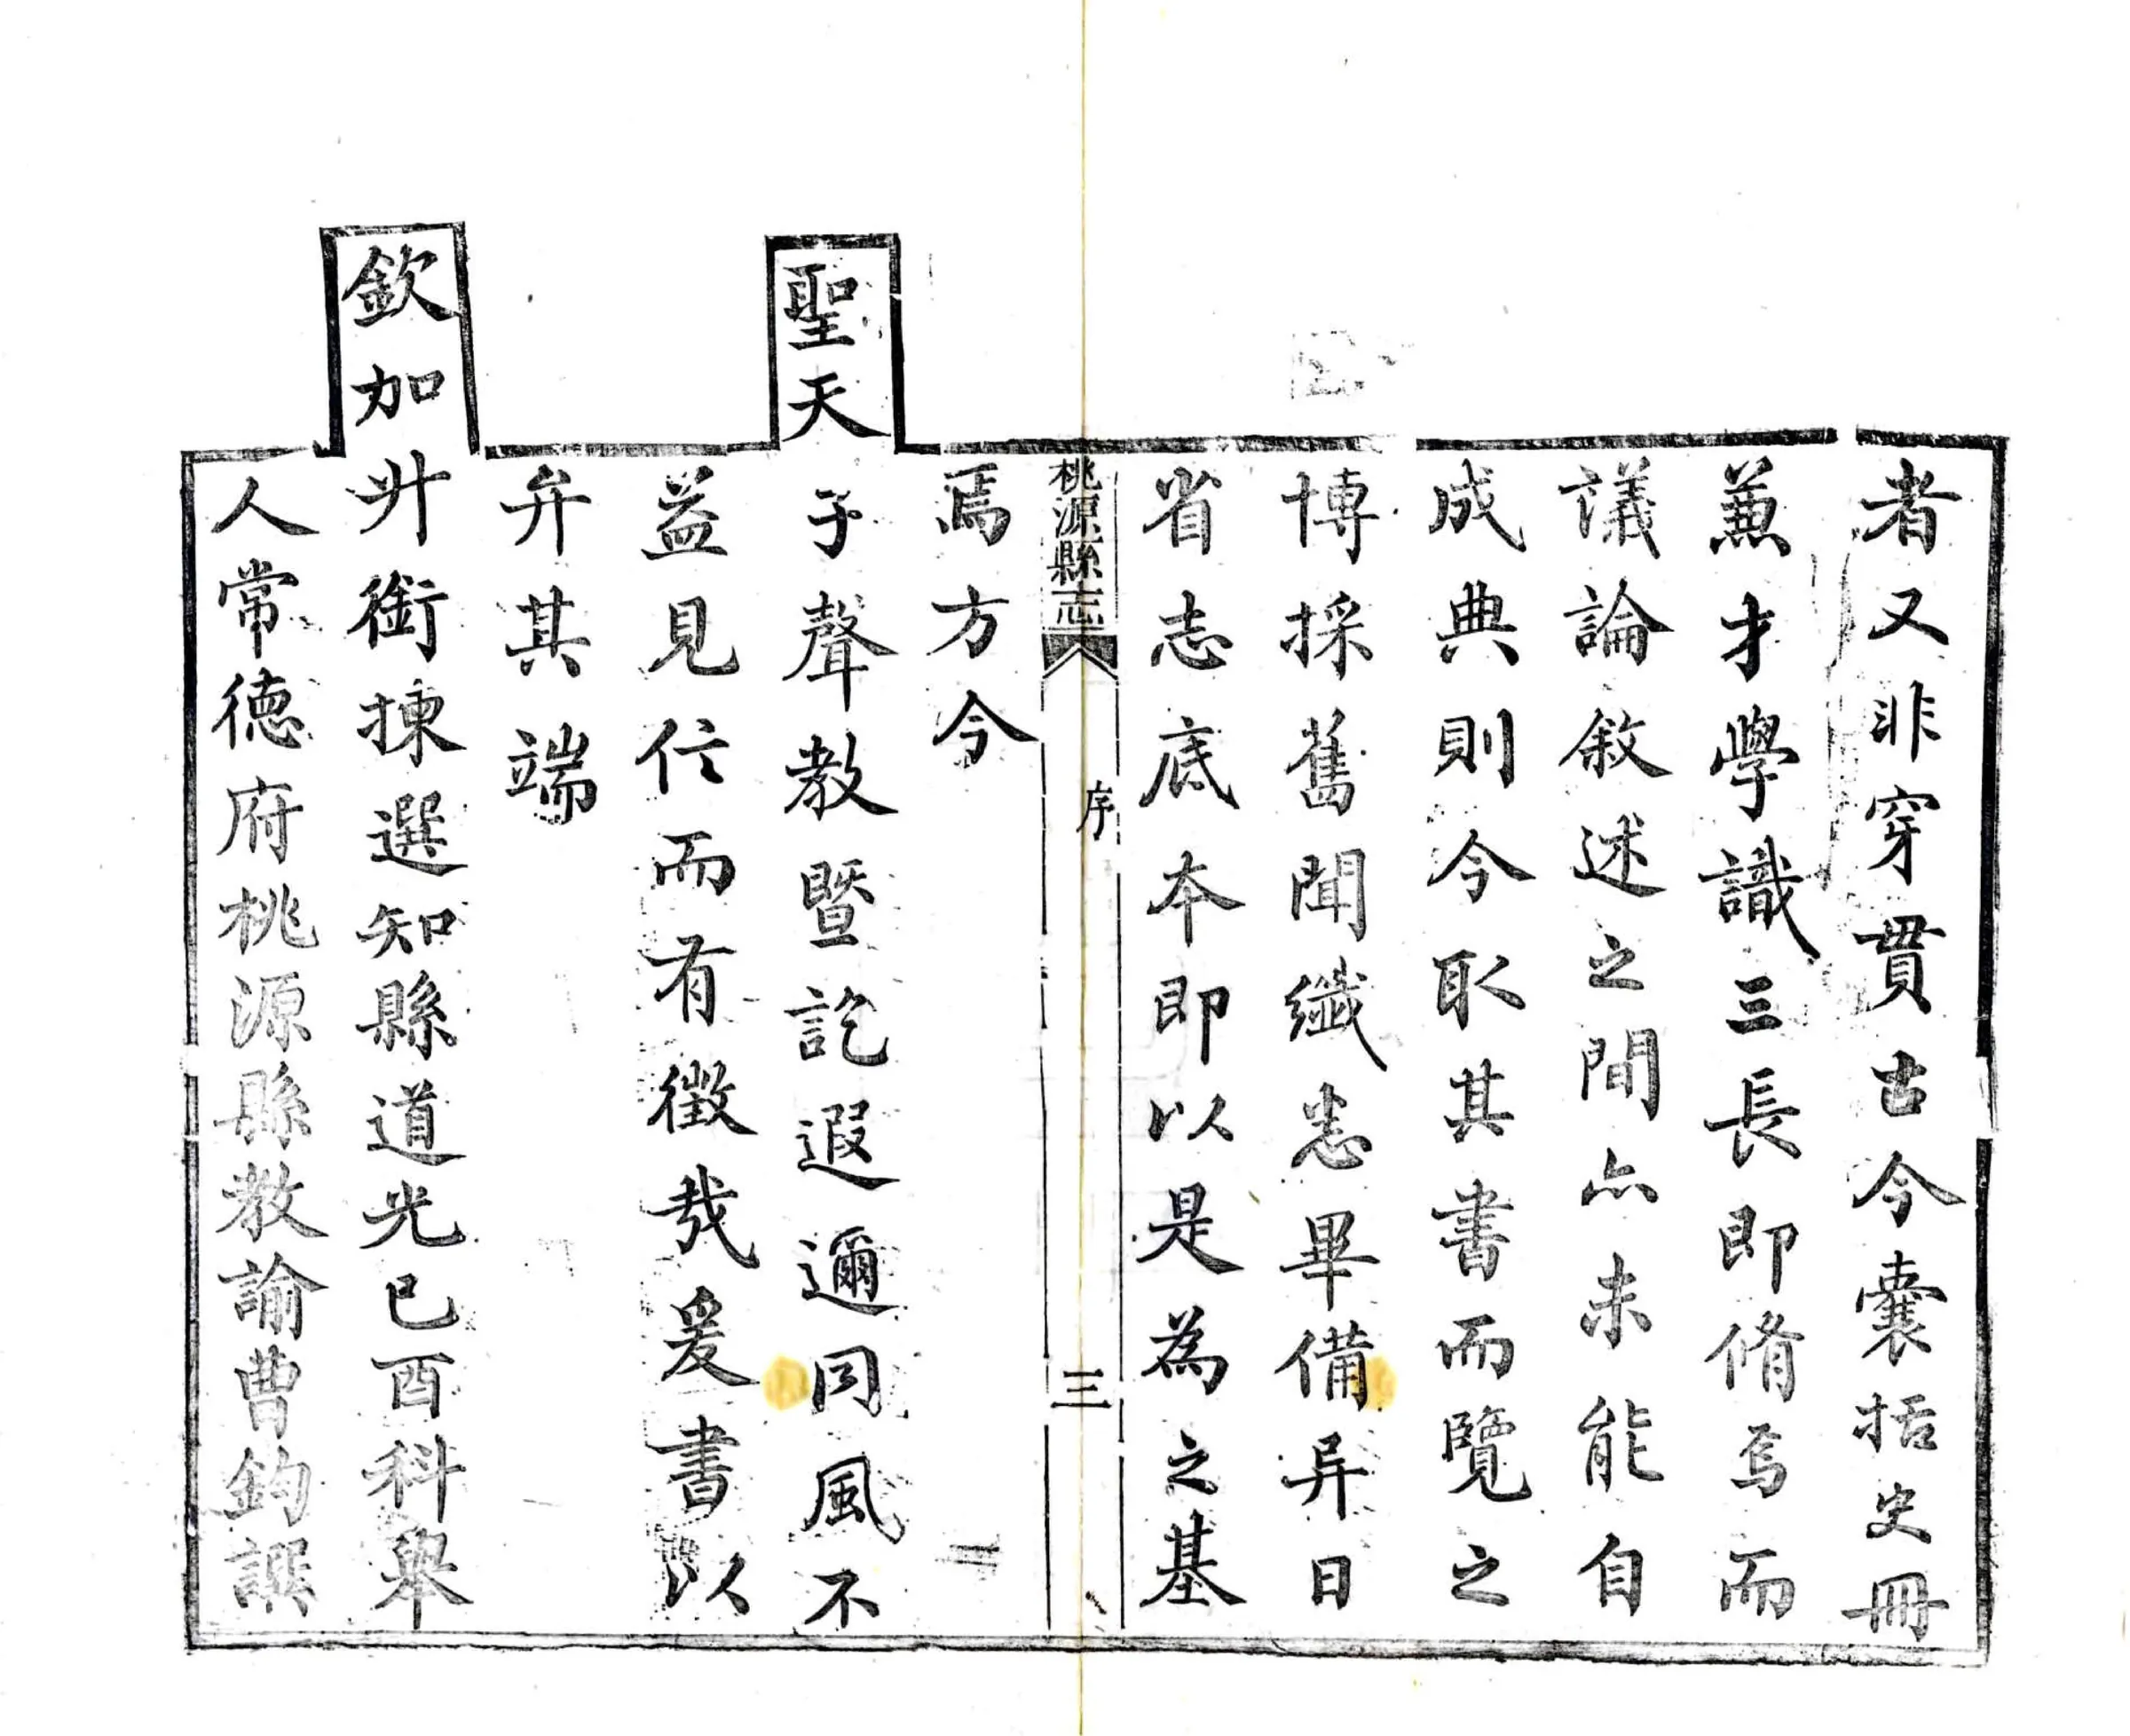 者又非穿貫古今囊括史冊
兼才學識三長即脩焉而
議論敘述之間亦未能自
成典則今取其書而覽之
博採舊聞纖悉畢備异日
省志底本即以是為之基
桃源縣志
序
三
焉方今
聖天子聲教暨訖遐邇同風不
益見信而有徵哉爰書以
弁其端
欽加升銜揀選知縣道光己酉科舉
人常德府桃源縣教諭曹鈞譔